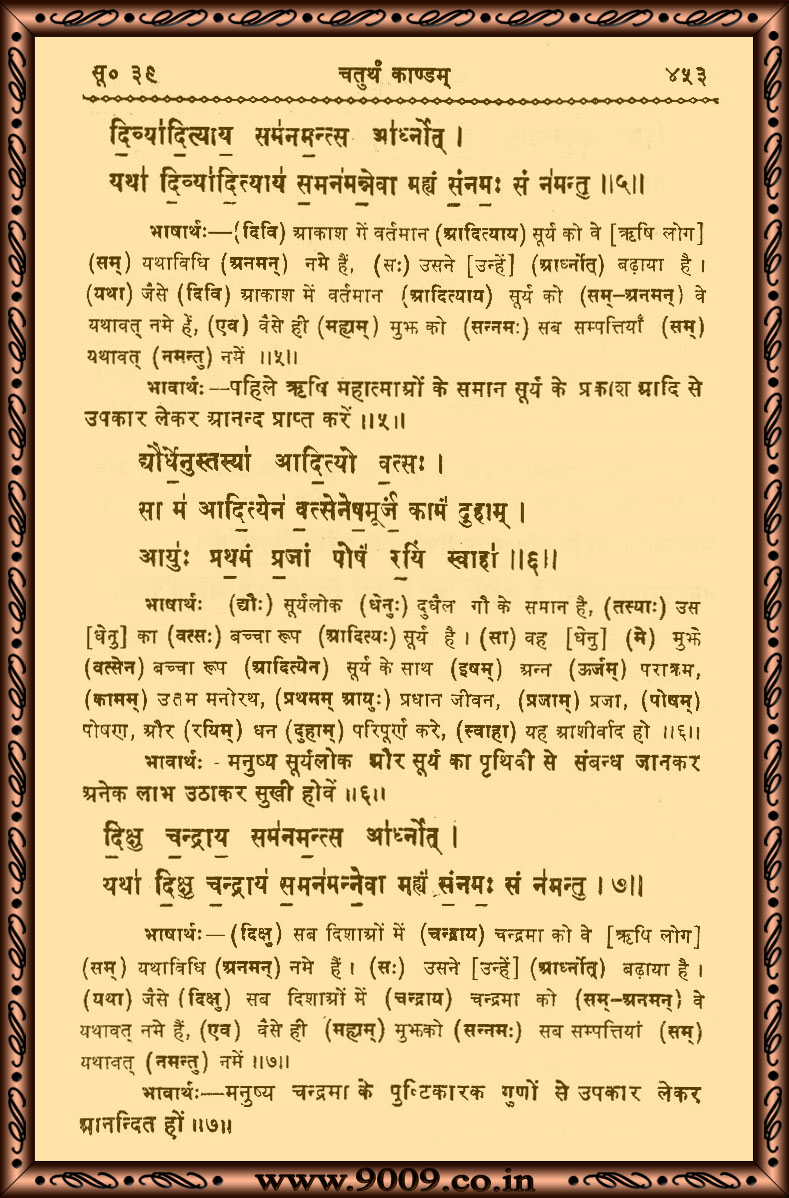 सू० ३९ चतुर्थं काण्डम् ४५३
दि॒व्या॑दि॒त्याय॒ सम॑नम॒न्त्स आ॑र्ध्नोत् ।
यथा॑ दि॒व्या॑दि॒त्याय॑ स॒मन॑मन्ने॒वा मह्यं॑ सं॒नमः॒ सं न॑मन्तु ॥५॥
भाषार्थः—(दिवि) आकाश में वर्तमान (आदित्याय) सूर्य को वे [ऋषि लोग]
(सम्) यथाविधि (अनमन्) नमे हैं, (सः) उसने [उन्हें] (आर्ध्नोत्) बढ़ाया है ।
(यथा) जैसे (दिवि) आकाश में वर्तमान (आदित्याय) सूर्य को (सम्-अनमन्) वे
यथावत् नमे हैं, (एव) वैसे ही (मह्यम्) मुझ को (सन्नमः) सब सम्पत्तियाँ (सम्)
यथावत् (नमन्तु) नमें ॥५॥
भावार्थः—पहिले ऋषि महात्माओं के समान सूर्य के प्रकाश आदि से
उपकार लेकर आनन्द प्राप्त करें ॥५॥
द्यौर्धे॒नुस्तस्या॑ आदि॒त्यो व॒त्सः ।
सा म॑ आदि॒त्येन॑ व॒त्सेनेष॒मूर्जं॒ कामं॑ दुहाम् ।
आयुः॑ प्रथ॒मं प्र॒जां पोषं॑ र॒यिं स्वाहा॑ ॥६॥
भाषार्थः (द्यौः) सूर्यलोक (धेनुः) दुधैल गौ के समान है, (तस्याः) उस
[धेनु] का (वत्सः) बच्चा रूप (आदित्यः) सूर्य है । (सा) वह [धेनु] (मे) मुझे
(वत्सेन) बच्चा रूप (आदित्येन) सूर्य के साथ (इषम्) अन्न (ऊर्जम्) पराक्रम,
(कामम्) उत्तम मनोरथ, (प्रथमम् आयुः) प्रधान जीवन, (प्रजाम्) प्रजा, (पोषम्)
पोषण, और (रयिम्) धन (दुहाम्) परिपूर्ण करे, (स्वाहा) यह आशीर्वाद हो ॥६॥
भावार्थः - मनुष्य सूर्यलोक और सूर्य का पृथिवी से संबन्ध जानकर
अनेक लाभ उठाकर सुखी होवें ॥६॥
दि॒क्षु च॒न्द्राय॒ सम॑नम॒न्त्स आ॑र्ध्नोत् ।
यथा॑ दि॒क्षु च॒न्द्राय॑ स॒मन॑मन्ने॒वा मह्यं॑ सं॒नमः॒ सं न॑मन्तु । ७॥
भाषार्थः—(दिक्षु) सब दिशाओं में (चन्द्राय) चन्द्रमा को वे [ऋषि लोग]
(सम्) यथाविधि (अनमन्) नमे हैं । (सः) उसने [उन्हें] (आर्ध्नोत्) बढ़ाया है ।
(यथा) जैसे (दिक्षु) सब दिशाओं में (चन्द्राय) चन्द्रमा को (सम्-अनमन्) वे
यथावत् नमे हैं, (एव) वैसे ही (मह्यम्) मुझको (सन्नमः) सब सम्पत्तियां (सम्)
यथावत् (नमन्तु) नमें ॥७॥
भावार्थः—मनुष्य चन्द्रमा के पुष्टिकारक गुणों से उपकार लेकर
आनन्दित हों ॥७॥
www.9009.co.in